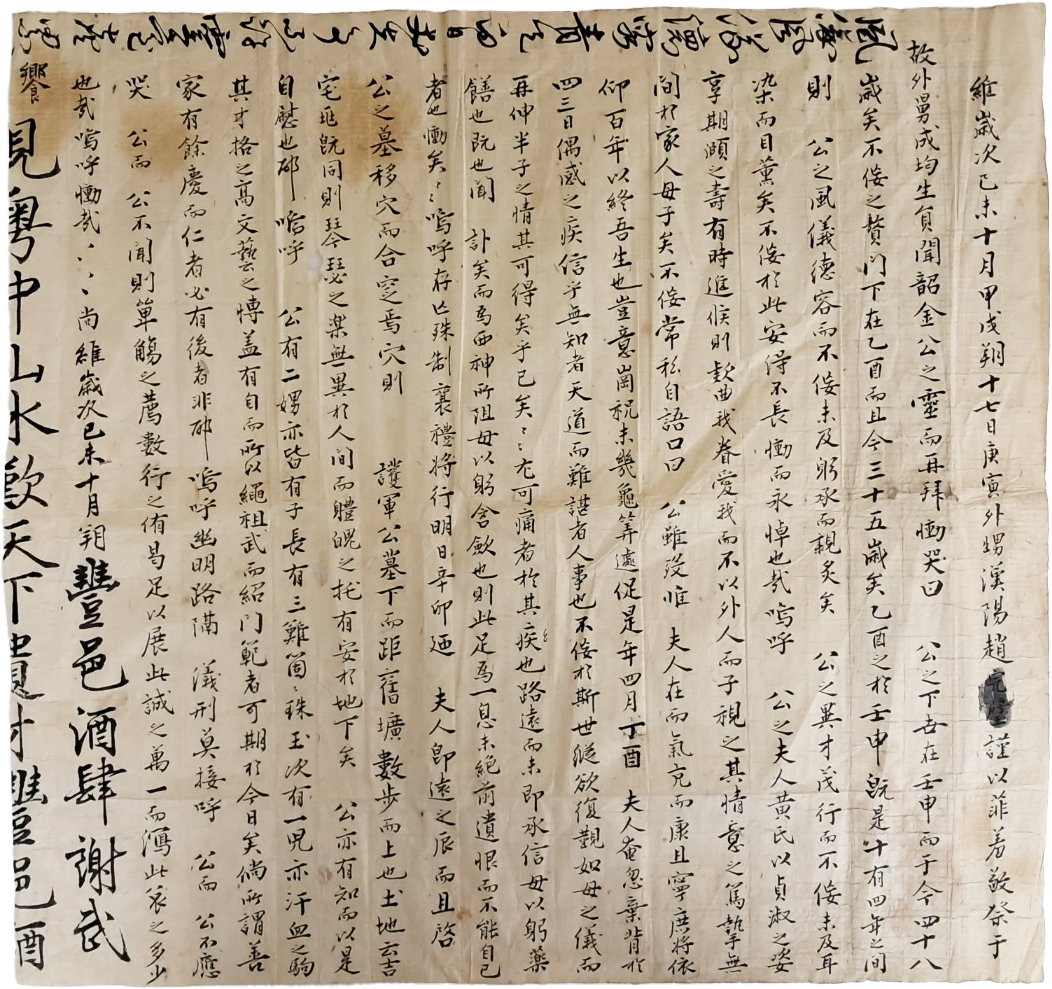 維歲次己未十月甲戌朔十七日庚寅外甥漢陽趙 謹以菲羞敬祭于
故外舅成均生員聞韶金公之靈而再拜慟哭曰 公之下世在壬申而于今四十八
歲矣不佞之贅門下在乙酉而且今三十五歲矣乙酉之於壬申旣是十有四年之間
則 公之風儀德容而不佞未及躬承而親炙矣 公之異才茂行而不佞未及耳
染而目薰矣不佞於此安得不長慟而永悼也哉嗚呼 公之夫人黃氏以貞淑之姿
享期頤之壽有時進候則欵曲我眷愛我而不以外人而子視之其情意之篤摯無
間於家人母子矣不佞常私自語口曰 公雖沒惟 夫人在而氣充而康且寧庶將依
仰百年以終吾生也豈意崗祝未幾龜筭遽促是年四月丁酉 夫人奄忽棄背於
四三日偶感之疾信乎無知者天道而難諶者人事也不佞於斯世縱欲復覩如母之儀而
再伸半子之情其可得矣乎已矣〻〻尤可痛者於其疾也路遠而未即承信毋以躬藥
饍也旣也聞 訃矣而爲西神所阻毋以躬含歛也則此足爲一息未絶前遺恨而不能自已
者也慟矣〻〻嗚呼存亡殊制襄禮將行明日辛卯迺 夫人卽遠之辰而且啓
公之墓移穴而合窆焉穴則 護軍公墓下而距舊壙數步而上也土地云吉
宅兆旣同則琴瑟之樂無異於人間而軆魄之托有安於地下矣 公亦有知而以是
自慰也耶嗚呼 公有二娚亦皆有子長有三難箇〻珠玉次有一兒亦汗血之駒
其才格之高文藝之博盖有自而所以繩祖武而紹門範者可期於今日矣倘所謂善
家有餘慶而仁者必有後者非耶嗚呼幽明路隔 儀刑莫接呼 公而 公不應
哭 公而 公不聞則簞觴之薦數行之侑曷足以展此誠之萬一而瀉此哀之多少
也哉嗚呼慟哉〻〻〻尚維歲次己未十月朔豐邑酒肆謝武
饗
見粤中山水歎天下遺才豐邑酒